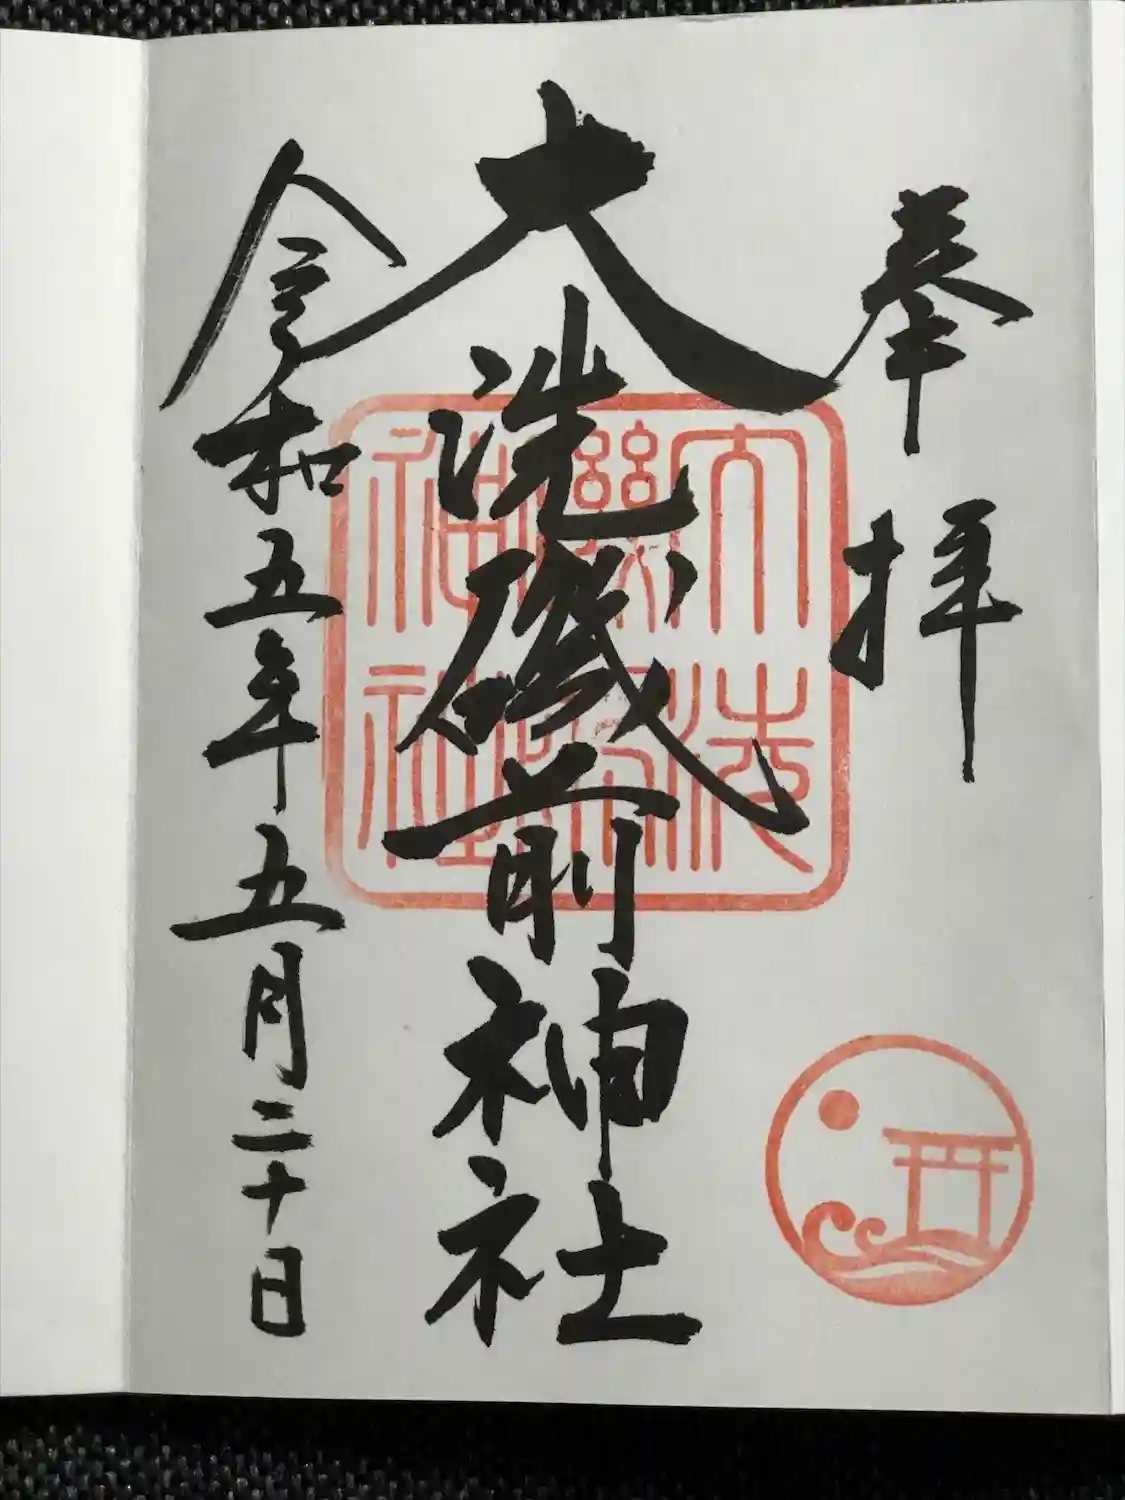 奉拝
大洗磯前神社
令和五年五月二十日
大洗
磯前
神社